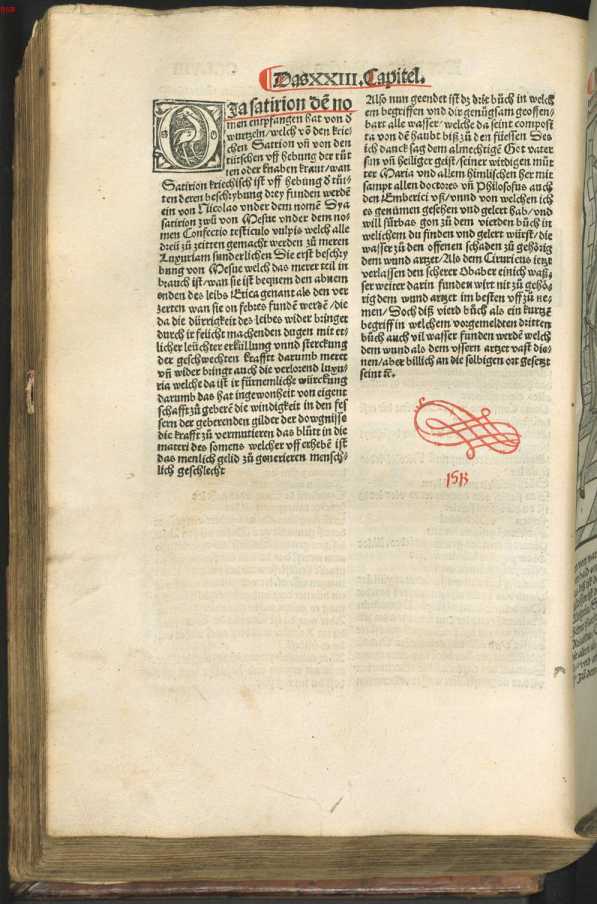 Das XXIII. Capitel.
Ja satirion dē no
men empfangen hat von d
wurtzeln/welch vō den krie-
chen Satirion vn̄ von den
tütschen vff hebung der rüt
ten oder knaben kraut/wan
Satirion kriechisch ist vff hebung d̕ rüt-
ten deren beschrybung drey funden werdē
ein von Nicolao vnder dem nomē Dya
satirion zwū von Mesue vnder dem no-
men Confectio testiculo vulpis welch alle
dreü zů zeitten gemacht werden zů meren
Luxuriam sunderlichen Die erst beschry
bung von Mesue welch das merer teil in
brauch ist/wan sie ist bequem den abnem
onden des leibs Etica genant als den ver
zerten wan sie on febres fundē werdē/die
da die dürrigkeit des leibes wider bringet
durch ir feücht machenden dugen mit et-
licher leüchter erküllung vnnd sterckung
der geschwechten krafft darumb meret
vn̄ wider bringt auch die verlorend luxu-
ria welche da ist ir fürnemliche würckung
darumb das hat ingewonheit von eigent
schafft zů geberē die windigkeit in den fes
sern der geberenden gilder der dowgnisse
die krafft zů vermutieren das blůt in die
materi des somens welcher vff erhebē ist
das menlich gelid zů generieren mensch-
lich geschlecht
Also nun geendet ist dz drit bůch in welch
em begriffen vnd dir genůgsam geoffen-
bart alle wasser/welche da seint composi
ta von dē haubt biß zů den füessen Des
ich danck sag dem almechtigē Got vater
sun vn̄ heiliger geist/seiner wirdigen můt
ter Maria vnd allem himlischen her mit
sampt allen doctores vn̄ Philosofus auch
den Emberici vsz/vnnd von welchen ich
es genūmen gesehen vnd gelert hab/vnd
will fürbas gon zů dem vierden bůch in
welichem du finden vnd gelert würst/die
wasser zů den offenen schaden zů gehörig
dem wund artzet/Als dem Ciruricus ietzt
verlassen den scherer Bbaber einich waß-
ser weiter darin funden wirt nit zů gehö-
rig dem wund artzet im besten vff zů ne-
men/Soch diß vierd bůch als ein kurtzē
begriff in welchem vorgemelten dritten
bůch auch vil wasser funden werdē welch
dem wund als dem vssern artzet vast die-
nen/aber billich an die selbigen ort gesetzt
seint ꝛc̄.